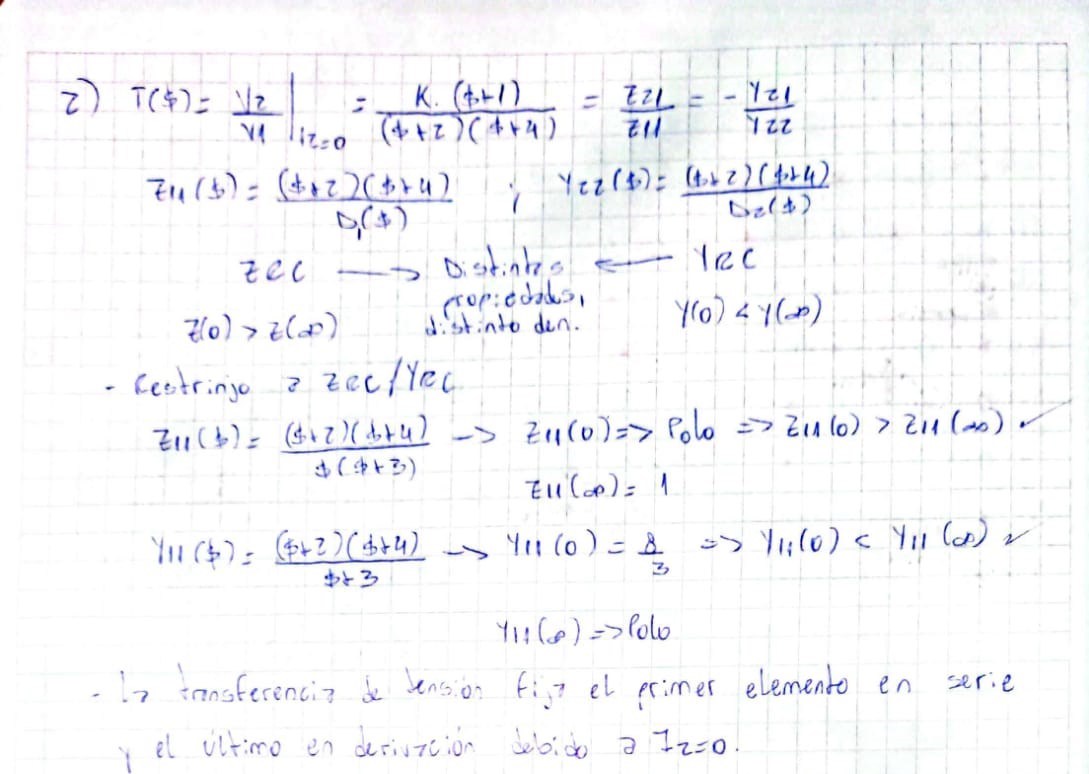 2) T($) = V2/V1 |I2=0 = K.($+1)/(($+2)($+4)) = Z21/Z11 = - Y21/Y22
Z11($) = ($+2)($+4)/D1($) ; Y22($) = ($+2)($+4)/D2($)
ZRC → Distintas ← YRC
propiedades,
Z(0) > Z(∞) distinto den. Y(0) < Y(∞)
- Restrinjo a ZRC/YRC
Z11($) = ($+2)($+4)/($($+3)) → Z11(0) => Polo => Z11(0) > Z11(∞) ✓
Z11(∞) = 1
Y11($) = ($+2)($+4)/($+3) → Y11(0) = 8/3 => Y11(0) < Y11(∞) ✓
Y11(∞) => Polo
- La transferencia de tensión fija el primer elemento en serie
y el último en derivación debido a I2=0.